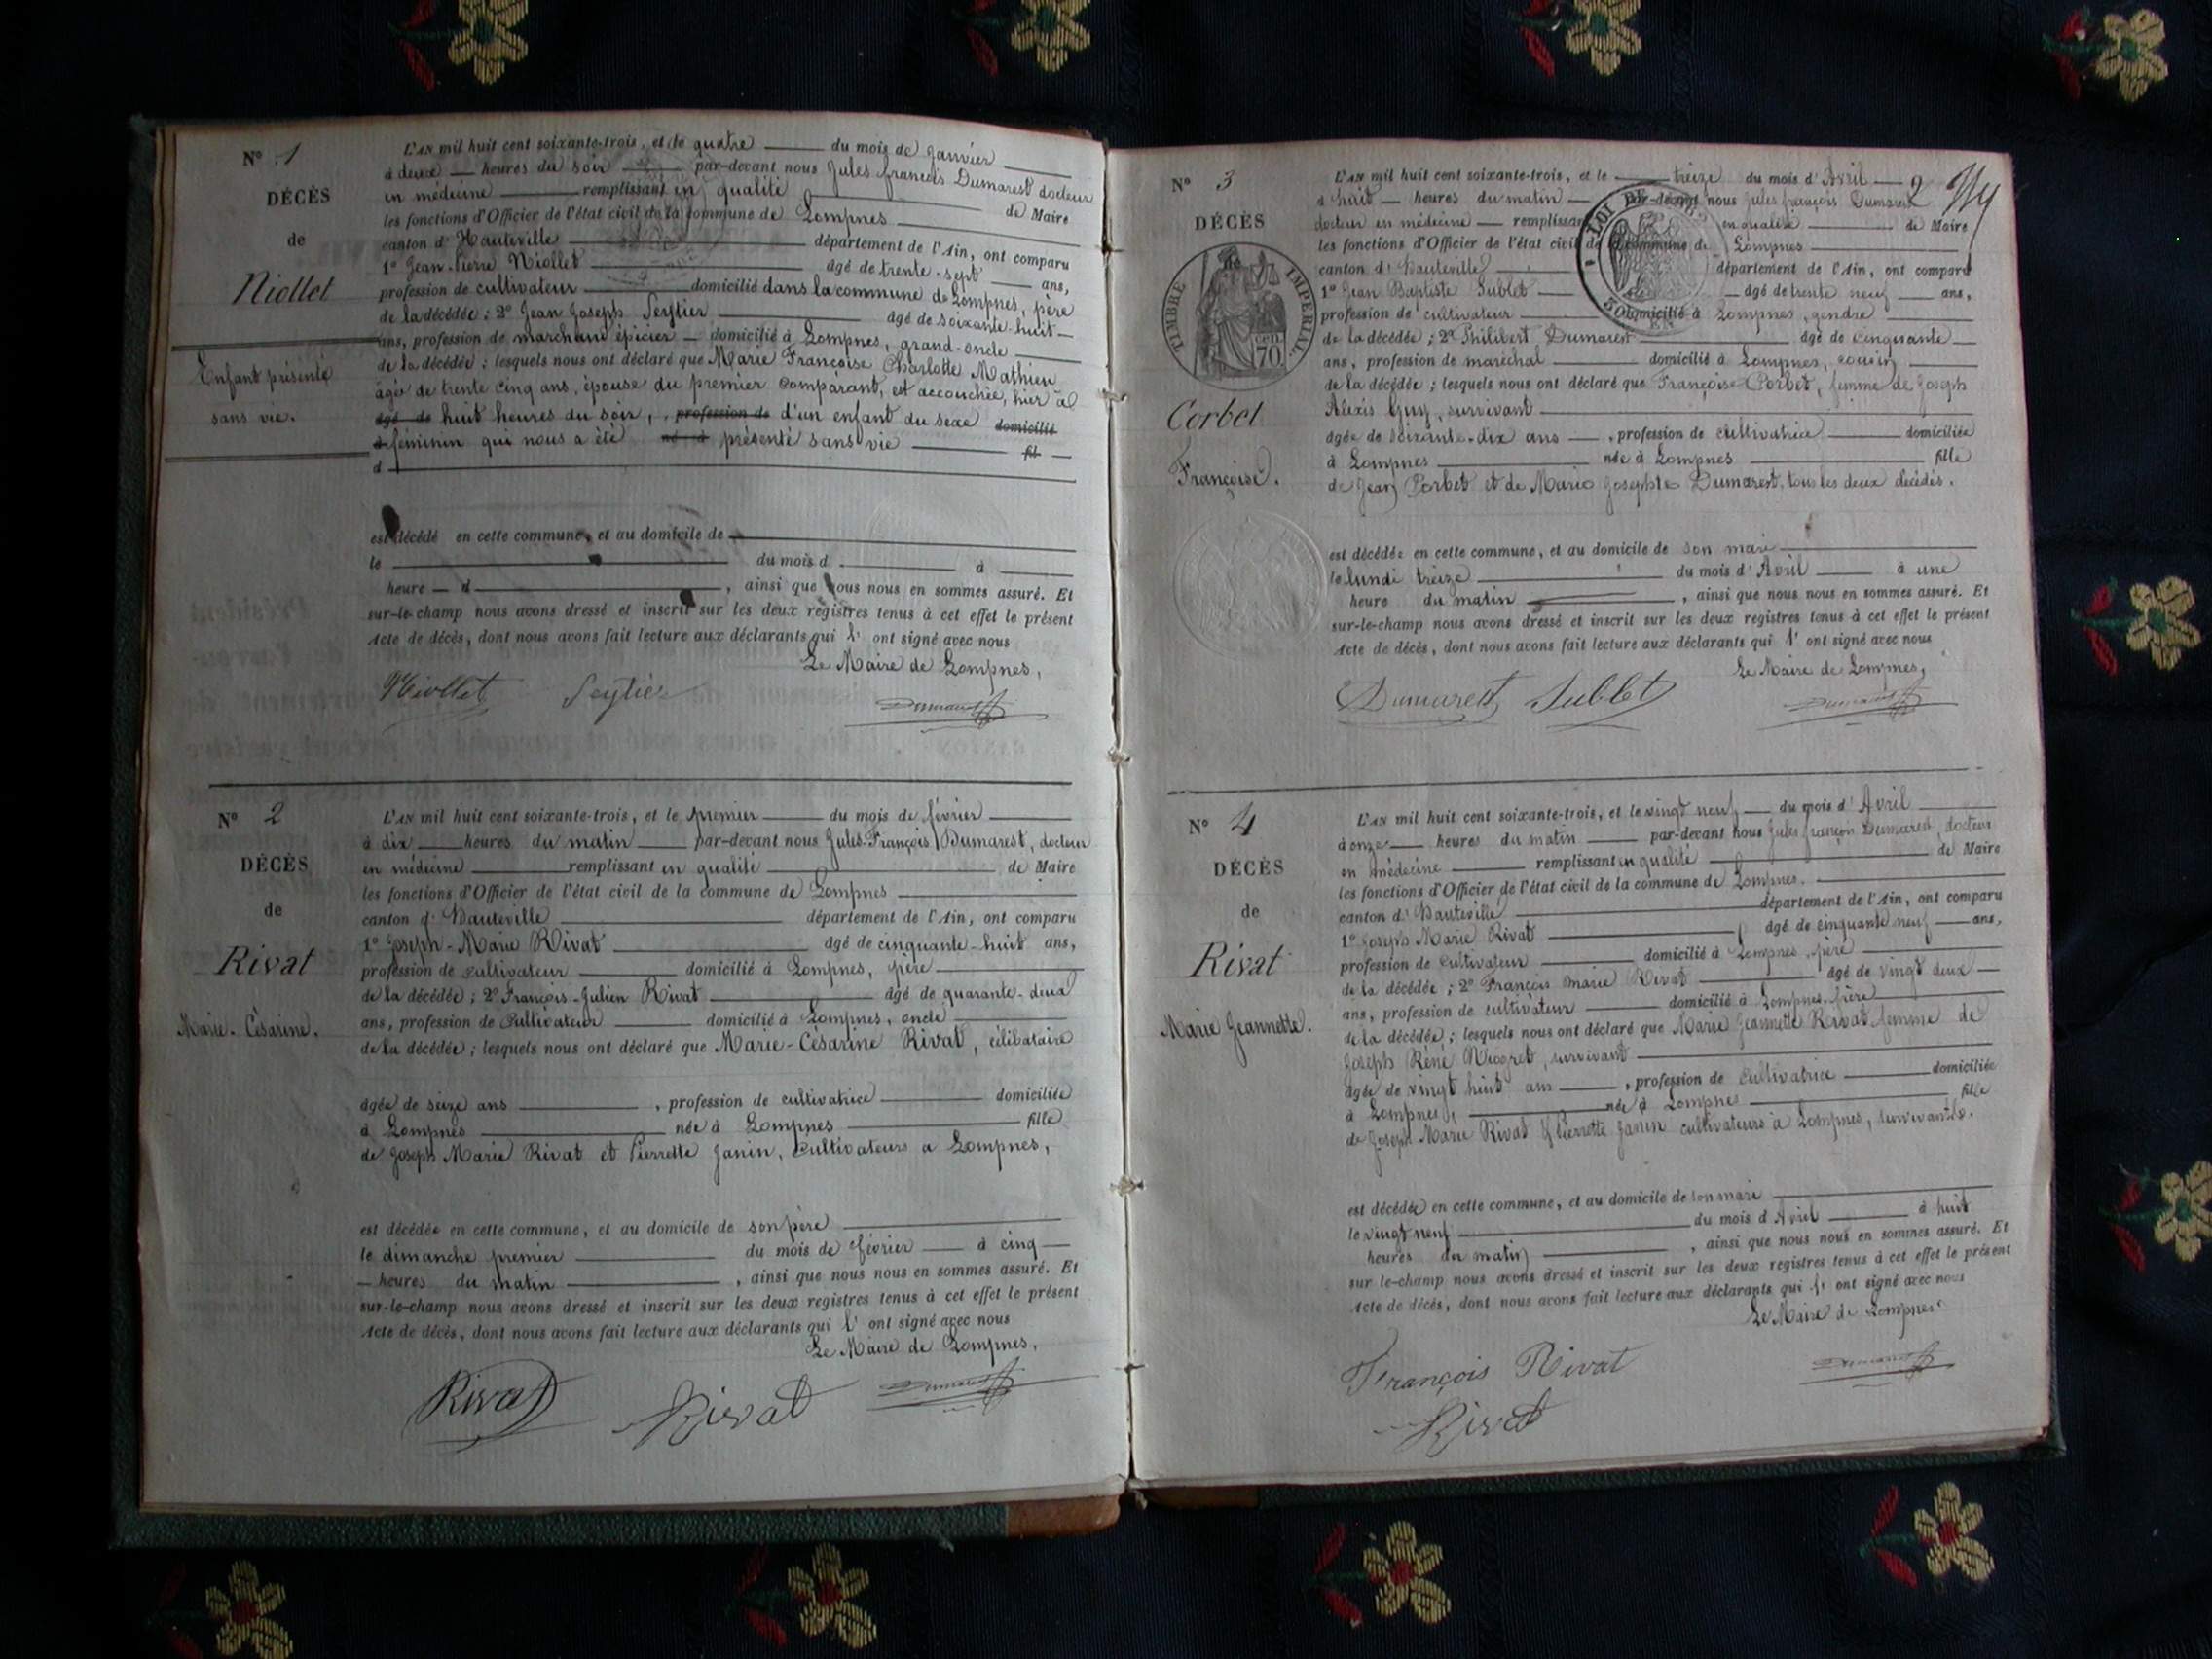 N° 1
DÉCÈS
de
Niollet
Enfant présenté
sans vie.
L'AN mil huit cent soixante-trois, et le quatre du mois de Janvier
à deux heures du soir par-devant nous Jules François Dumarest docteur
en médecine remplissant en qualité de Maire
les fonctions d'Officier de l'état civil de la commune de Lompnes
canton d'Hauteville département de l'Ain, ont comparu
1° Jean-Pierre Niollet âgé de trente-sept ans,
profession de cultivateur domicilié dans la commune de Lompnes, père
de la décédée ; 2° Jean Joseph Seytier âgé de soixante-huit
ans, profession de marchand épicier domicilié à Lompnes, grand-oncle
de la décédée ; lesquels nous ont déclaré que Marie Françoise Charlotte Mathieu
âgée de trente cinq ans, épouse du premier comparant, est accouchée, hier à
âgé de huit heures du soir, profession de d'un enfant du sexe domicilié
à féminin qui nous a été né à présenté sans vie fil
d
est décédé en cette commune, et au domicile de
le du mois d à
heure d , ainsi que nous nous en sommes assuré. Et
sur-le-champ nous avons dressé et inscrit sur les deux registres tenus à cet effet le présent
Acte de décès, dont nous avons fait lecture aux déclarants qui l' ont signé avec nous
Le Maire de Lompnes,
Niollet Seytier Dumarest
N° 2
DÉCÈS
de
Rivat
Marie-Césarine.
L'AN mil huit cent soixante-trois, et le premier du mois de février
à dix heures du matin par-devant nous Jules-François Dumarest, docteur
en médecine remplissant en qualité de Maire
les fonctions d'Officier de l'état civil de la commune de Lompnes
canton d'Hauteville département de l'Ain, ont comparu
1° Joseph-Marie Rivat âgé de cinquante-huit ans,
profession de cultivateur domicilié à Lompnes, père
de la décédée ; 2° François-Julien Rivat âgé de quarante-deux
ans, profession de Cultivateur domicilié à Lompnes, oncle
de la décédée ; lesquels nous ont déclaré que Marie-Césarine Rivat, célibataire
âgée de seize ans , profession de cultivatrice domiciliée
à Lompnes née à Lompnes fille
de Joseph Marie Rivat et Pierrette Janin, Cultivateurs a Lompnes,
est décédée en cette commune, et au domicile de son père
le dimanche premier du mois de février à cinq
heures du matin , ainsi que nous nous en sommes assuré. Et
sur-le-champ nous avons dressé et inscrit sur les deux registres tenus à cet effet le présent
Acte de décès, dont nous avons fait lecture aux déclarants qui l' ont signé avec nous
Le Maire de Lompnes,
Rivat Rivat Dumarest
N° 3
DÉCÈS
TIMBRE IMPERIAL.
70 cen
Corbet
Françoise.
L'AN mil huit cent soixante-trois, et le treize du mois d'Avril 2
à huit heures du matin par-devant nous Jules François Dumarest
docteur en médecine remplissant en qualité de Maire
les fonctions d'Officier de l'état civil de la commune de Lompnes
canton d'Hauteville département de l'Ain, ont comparu
1° Jean Baptiste Sublet âgé de trente neuf ans,
profession de cultivateur domicilié à Lompnes, gendre
de la décédée ; 2° Philibert Dumarest âgé de cinquante
ans, profession de maréchal domicilié à Lompnes, cousin
de la décédée ; lesquels nous ont déclaré que Françoise Corbet, femme de Joseph
Alexis Guy, survivant
âgée de soixante-dix ans , profession de cultivatrice domiciliée
à Lompnes née à Lompnes fille
de Jean Corbet et de Marie Josephte Dumarest, tous les deux décédés.
est décédée en cette commune, et au domicile de son mari
le lundi treize du mois d'Avril à une
heure du matin , ainsi que nous nous en sommes assuré. Et
sur-le-champ nous avons dressé et inscrit sur les deux registres tenus à cet effet le présent
Acte de décès, dont nous avons fait lecture aux déclarants qui l' ont signé avec nous
Le Maire de Lompnes,
Dumarest Sublet Dumarest
N° 4
DÉCÈS
de
Rivat
Marie Jeannette.
L'AN mil huit cent soixante-trois, et le vingt neuf du mois d'Avril
à onze heures du matin par-devant nous Jules françois Dumarest docteur
en médecine remplissant en qualité de Maire
les fonctions d'Officier de l'état civil de la commune de Lompnes.
canton d'Hauteville département de l'Ain, ont comparu
1° Joseph Marie Rivat âgé de cinquante neuf ans,
profession de Cultivateur domicilié à Lompnes, père
de la décédée ; 2° François marie Rivat âgé de vingt deux
ans, profession de cultivateur domicilié à Lompnes, frère
de la décédée ; lesquels nous ont déclaré que Marie Jeannette Rivat femme de
Joseph Réné Niogret, survivant
âgée de vingt huit ans , profession de Cultivatrice domiciliée
à Lompnes, née à Lompnes fille
de Joseph Marie Rivat & Pierrette Janin cultivateurs à Lompnes, survivants.
est décédée en cette commune, et au domicile de son mari
le vingt neuf du mois d Avril à huit
heures du matin , ainsi que nous nous en sommes assuré. Et
sur le-champ nous avons dressé et inscrit sur les deux registres tenus à cet effet le présent
Acte de décès, dont nous avons fait lecture aux déclarants qui l' ont signé avec nous
Le Maire de Lompnes
François Rivat Dumarest
Rivat